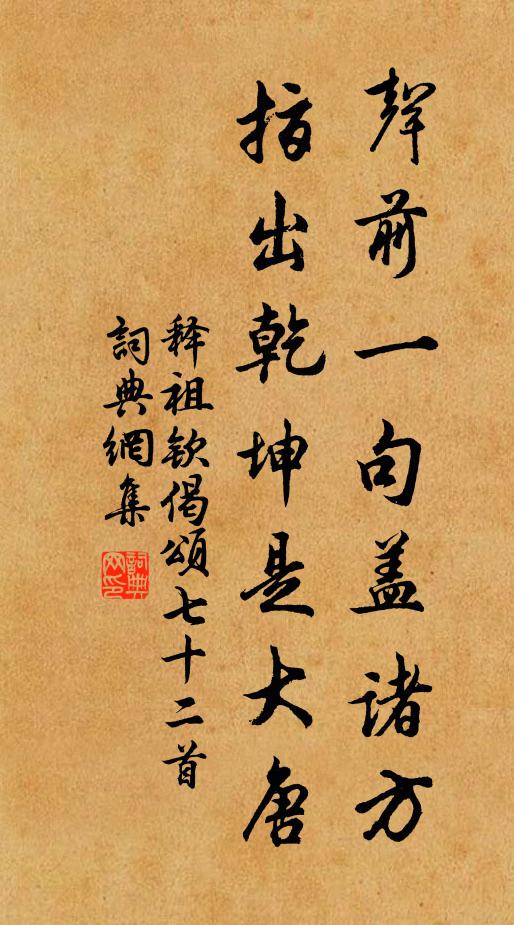 聲前一句盖諸方
指出乾坤是大唐
释祖欽偈頌七十二首
詞典網集
詞典网印